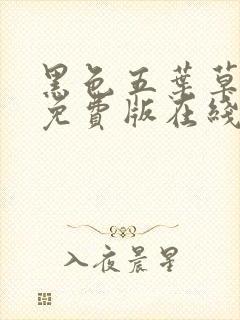 黑色五葉草
免費版在綫
入夜晨星